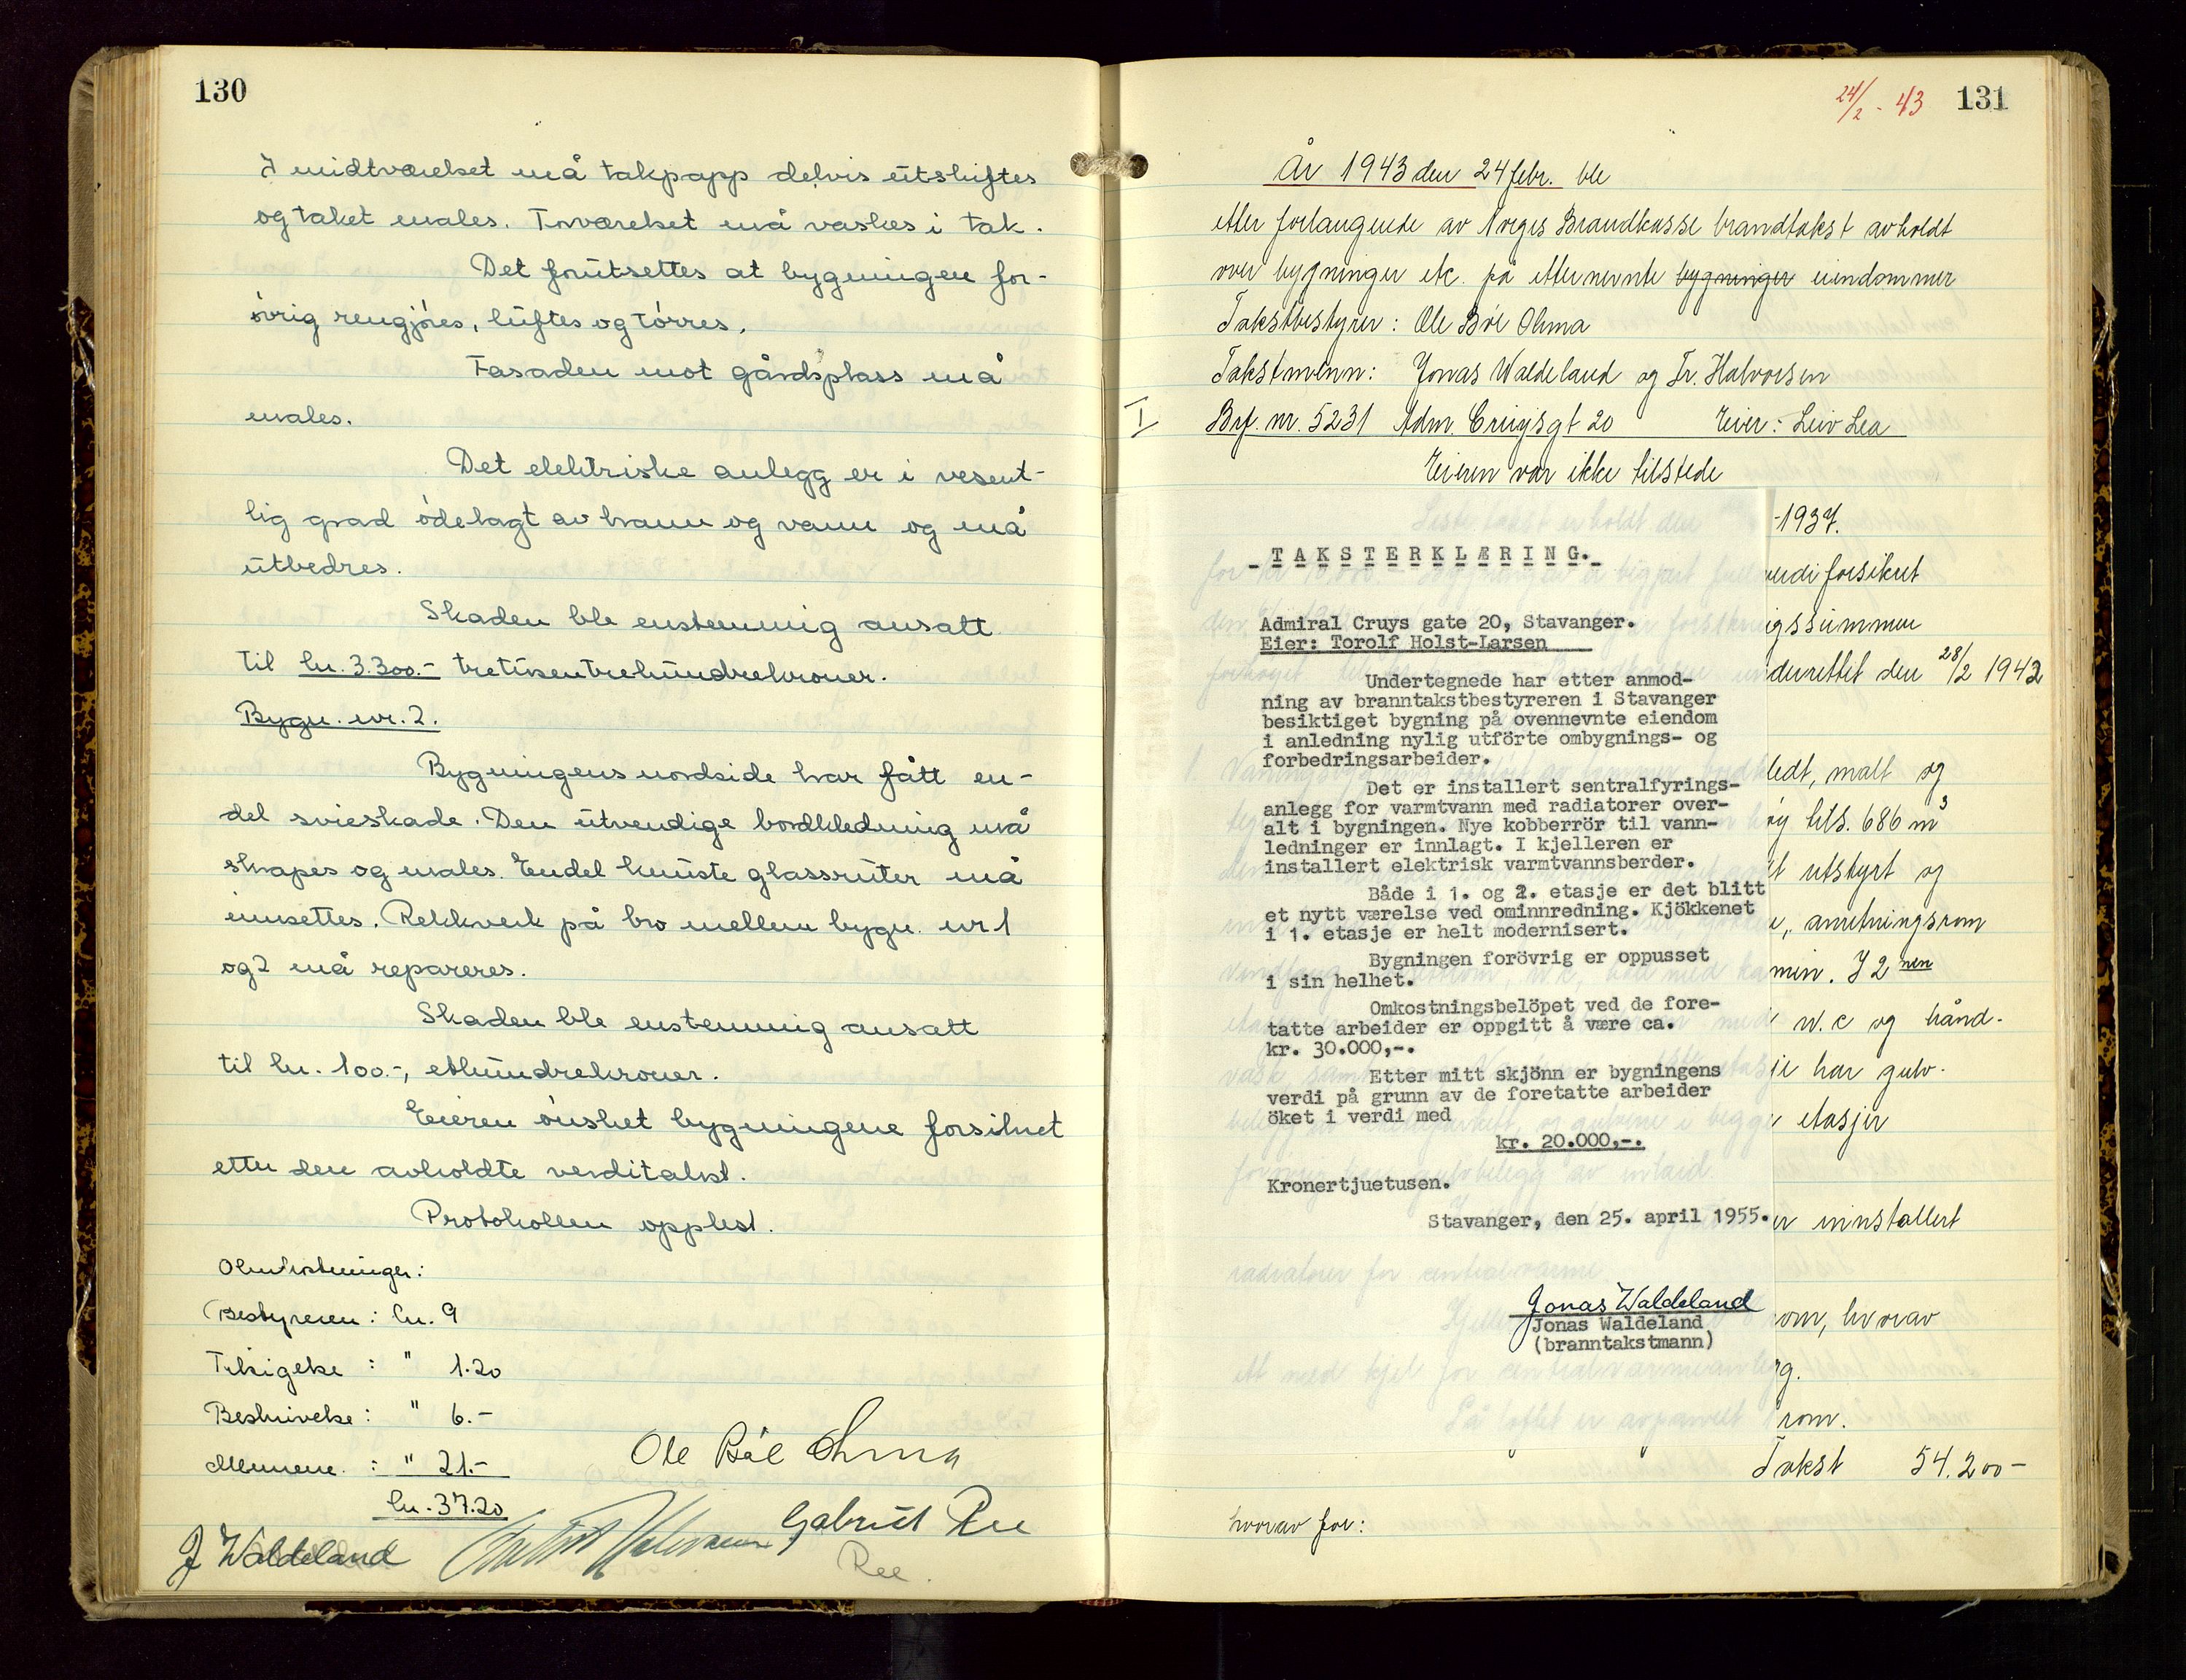 130
I midtværelset må takpapp delvis utskiftes
og taket males. Toværelset må vaskes i tak.
Det forutsettes at bygningen for-
övrig rengjöres, luftes og törres.
Fasaden mot gårdsplass må
males.
Det elektriske anlegg er i vesent-
lig grad ödelagt av brann og vann og må
utbedres.
Skaden ble enstemmig ansatt
til kr. 3.300.- tretusentrehundrekroner.
Bygn. nr. 2.
Bygningens nordside har fått en-
del svieskade. Den utvendige bordkledning må
skrapes og males. Endel knuste glassruter må
innsettes. Rekkverk på bro mellem bygn. nr 1
og 2 må repareres.
Skaden ble enstemmig ansatt
til kr. 100.-, etthundrekroner.
Eieren önsket bygningene forsikret
etter den avholdte verditakst.
Protokollen opplest.
Omkostninger:
Bestyreren: kr. 9
Tilsigelse : " 1.20
Beskrivelse: " 6.-
Mennene : " 21.-
kr. 37.20
Ole Böe Ohma
J Waldeland
Halvorsen
Gabriel Ree
Ree.
24/2 - 43 131
År 1943 den 24 febr. ble
etter forlangende av Norges Brandkasse brandtakst avholdt
over bygninger etc. på etternevnte bygninger eiendommer
Takstbestyrer: Ole Böe Ohma
Takstmenn: Jonas Waldeland og Fr. Halvorsen
I Brf. nr. 5231 Adm. Cruysgt 20 Eier: Leiv Lea
Eieren var ikke tilstede
TAKSTERKLÆRING.
Admiral Cruys gate 20, Stavanger.
Eier: Torolf Holst-Larsen
Undertegnede har etter anmod-
ning av branntakstbestyreren i Stavanger
besiktiget bygning på ovennevnte eiendom
i anledning nylig utförte ombygnings- og
forbedringsarbeider.
Det er installert sentralfyrings-
anlegg for varmtvann med radiatorer over-
alt i bygningen. Nye kobberrör til vann-
ledninger er innlagt. I kjelleren er
installert elektrisk varmtvannsberder.
Både i 1. og 2. etasje er det blitt
et nytt værelse ved ominnredning. Kjökkenet
i 1. etasje er helt modernisert.
Bygningen forövrig er oppusset
i sin helhet.
Omkostningsbelöpet ved de fore-
tatte arbeider er oppgitt å være ca.
kr. 30.000,-.
Etter mitt skjönn er bygningens
verdi på grunn av de foretatte arbeider
öket i verdi med
kr. 20.000,-.
Kronertjuetusen.
Stavanger, den 25. april 1955.
Jonas Waldeland
Jonas Waldeland
(branntakstmann)
-1937.
verdi forsikret
igssummen
derettet den 28/2 1942
ledt, malt og
öy tils. 686 m3
t utstyrt og
e, anretningsrom
min. I 2nen
w.c og hånd-
je har gulv-
etasjer
er innstallert
om, hvorav
g.
rom.
Takst 54.200-
hvorav for: